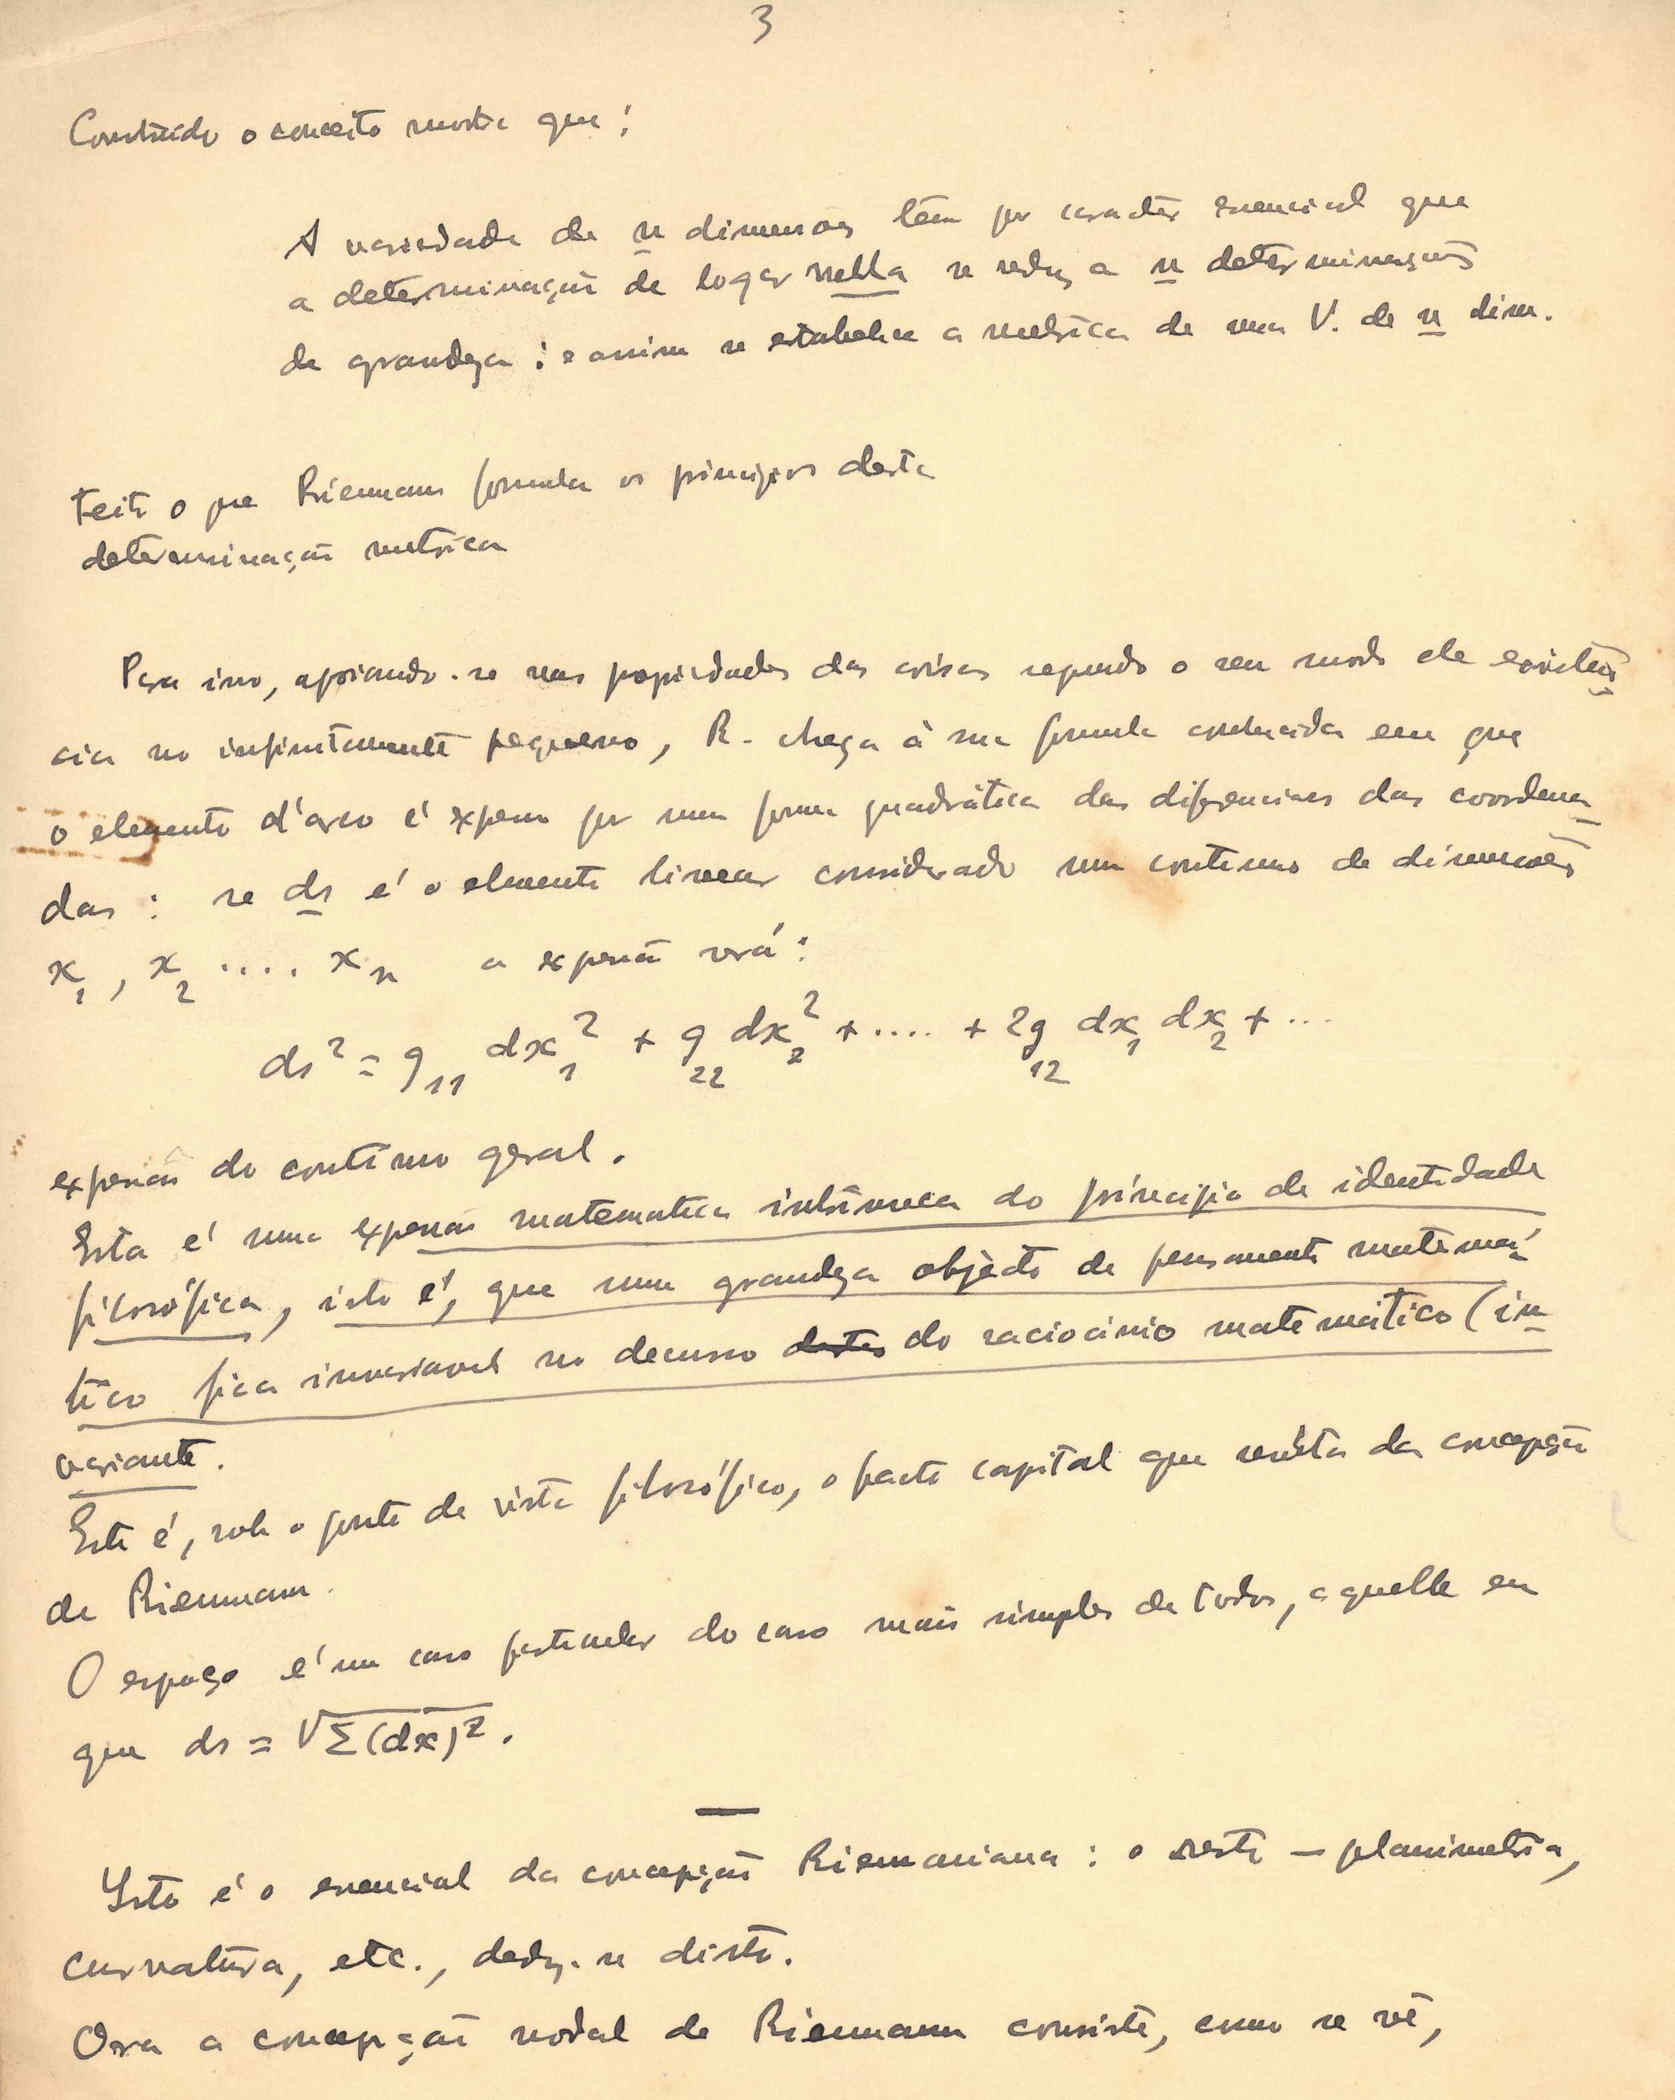 3
Construido o conceito mostra que:
A variedade de n dimensões têm por caracter essencial que
a determinação de logar nella se reduz a n determinações
de grandeza: e assim se estabelece a metrica de uma V. de n dim.
Feito o que Riemann formula os principios desta
determinação metrica
Para isso, apoiando-se nas propriedades das coisas segundo o seu modo de existen
cia no infinitamente pequeno, R. chega à sua formula conhecida em que
o elemento d'arco é expresso por uma forma quadrática das diferenciaes das coordena
das: se ds é o elemento linear considerado num continuo de dimensões
x1, x2 .... xn a expressão será:
ds² = g11 dx1² + g22 dx2² + .... + 2g12 dx1 dx2 + ...
expressão do contínuo geral.
Esta é uma expressão matematica intrínseca do príncipio de identidade
filosófica, isto é, que uma grandeza objècto de pensamento matemá
tico fica invariavel no decurso destes do raciocinio matemático (in
variante.
Este é, sob o ponto de vista filosófico, o facto capital que resulta da concepção
de Riemann.
O espaço é um caso particular do caso mais simples de todos, aquelle em
que ds = √Σ(dx)².
Isto é o essencial da concepção Riemaniana: o resto — planimetria,
curvatura, etc., deduz-se disto.
Ora a concepção nodal de Riemann consiste, como se vê,